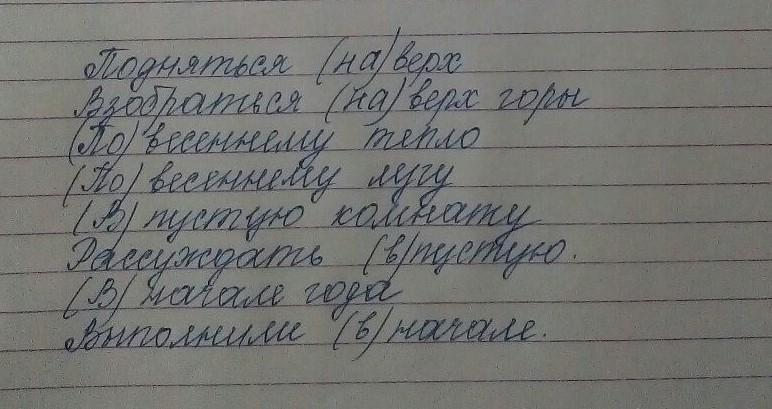 Подняться (на)верх
Взобраться (на) верх горы
(По) весеннему тепло
(По) весеннему лугу
(В) пустую комнату
Рассуждать (в)пустую.
(В) начале года
Выполнили (в) начале.